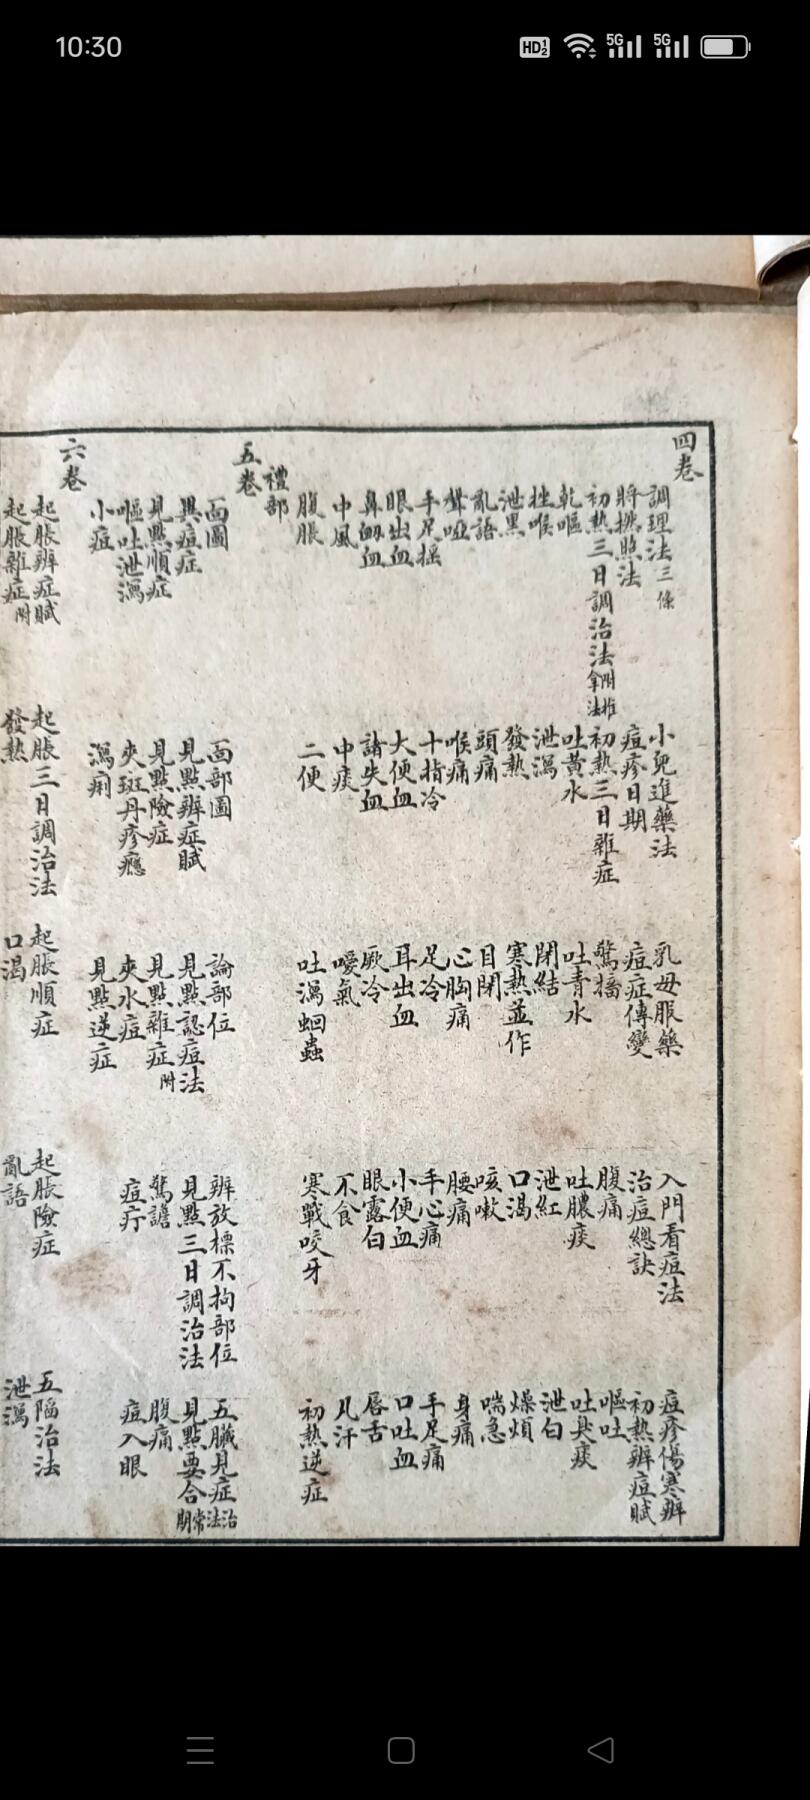 10:30
HD 1 2 5G 5G
四卷
調理法三條 小兒進藥法 乳母服藥 入門看痘法 痘疹傷寒辨
將撚照法 痘疹日期 痘症傳變 治痘總訣 初熱辨痘賦
初熱三日調治法附推拿法 初熱三日雜症 驚搐 腹痛 嘔吐
乾嘔 吐黃水 吐青水 吐膿痰 吐臭痰
挫喉 泄瀉 閉結 泄紅 泄白
泄黑 發熱 寒熱並作 口渴 燥煩
亂語 頭痛 目閉 咳嗽 喘急
聲啞 喉痛 心胸痛 腰痛 身痛
手足搖 十指冷 足冷 手心痛 手足痛
眼出血 大便血 耳出血 小便血 口吐血
鼻衂血 諸失血 厥冷 眼露白 唇舌
中風 中痰 噯氣 不食 凡汗
腹脹 二便 吐瀉蛔蟲 寒戰咬牙 初熱逆症
禮部
五卷
面圖 面部圖 論部位 辨放標不拘部位 五臟見症治法
異痘症 見點辨症賦 見點認痘法 見點三日調治法 見點要合常期
見點順症 見點險症 見點雜症附 驚譫 腹痛
嘔吐泄瀉 夾斑丹疹癮 夾水痘 痘疔 痘入眼
小症 瀉痢 見點逆症
六卷
起脹辨症賦 起脹三日調治法 起脹順症 起脹險症 五陷治法
起脹雜症附 發熱 口渴 亂語 泄瀉